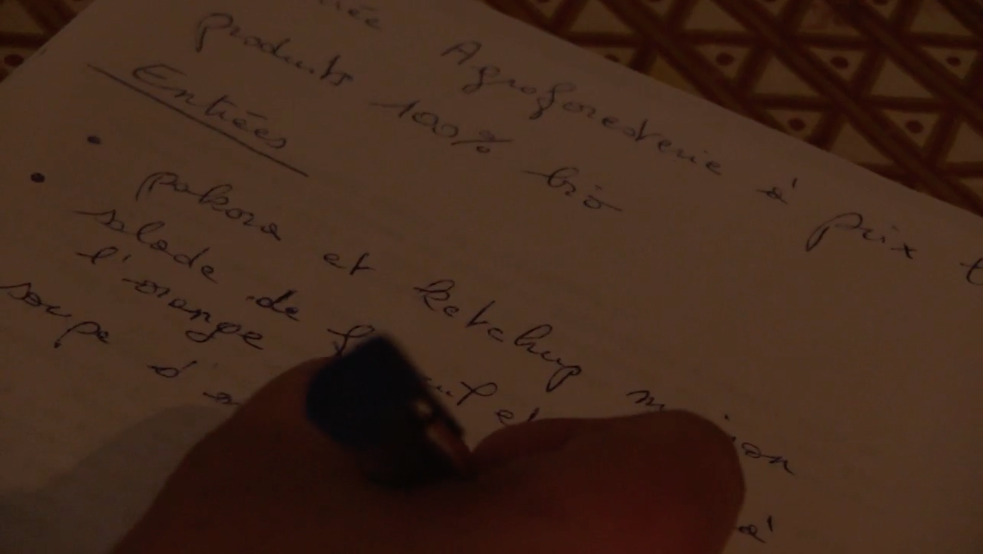 Agroforesterie à prix
produits 100% bio
Entrées
pakora et ketchup
salade de
l'orange
soupe d'
à